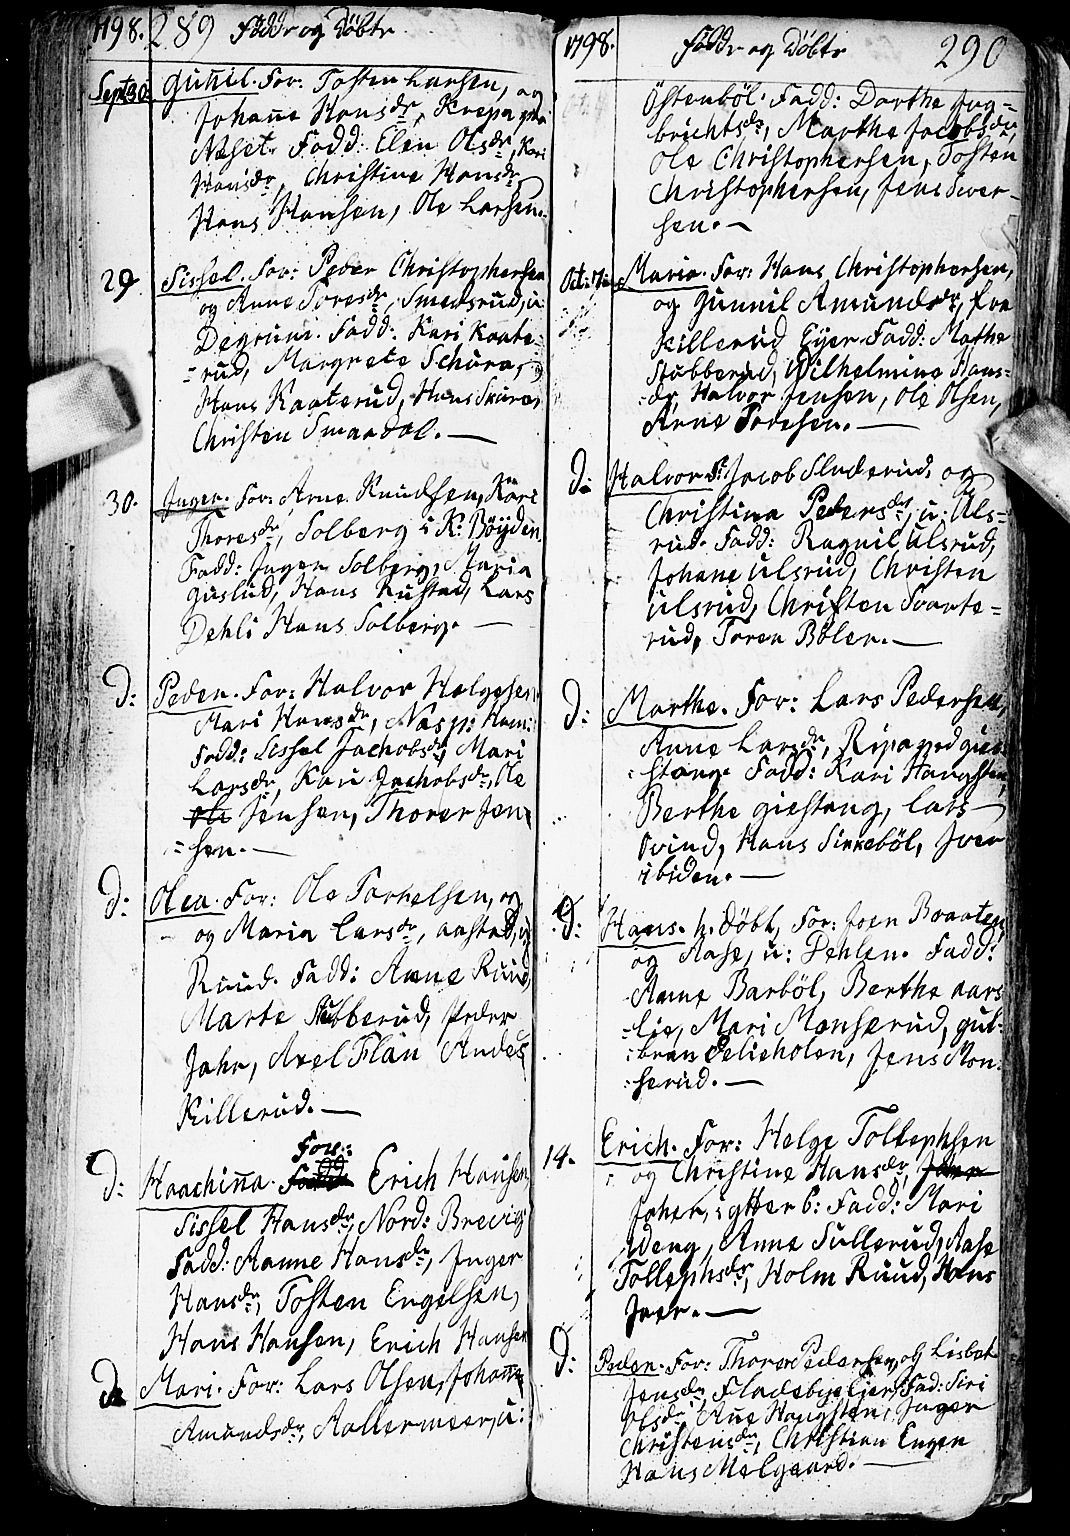 1798. 289 Föddr og Döbtr
Sept: 30. Guñil. For: Tosten Larsen, og
Johañe Hansdr, Krepa, gba
Næset. Fadd: Elen Olsdr, Kari
Hansdr, Christine Hansdr,
Hans Hansen, Ole Larsen.
29. Sissel. For: Peder Christophersen
og Anne Toresdr, Smedsrud, u:
Degrum. Fadd: Kari Kaate-
rud, Margrete Schure,
Hans Kaaterud, Hans Skure,
Christen Smaadal. —
30. Inger. For: Arne Knudsen, Kari
Thoresdr, Solberg i K: Böyden
Fadd: Inger Solberg, Maria
Guslud, Hans Rustad, Lars
Dehli Hans Solberg. —
D: Peder. For: Halvor Helgesen
Mari Hansdr, Næsp: Ham:
Fadd: Sissel Jachobsdr, Mari
Larsdr, Kari Jachobsdr, Ole
Ole Jensen, Thorer Jen
sen. —
D: Olea. For: Ole Torkelsen, og
og Maria Larsdr, Aastad, u
Ruud. Fadd: Anne Ruud,
Marte Stubberud, Peder
Jahr, Axel Flan Andes
Killerud. —
For:
D: Haachina. Erich Hansen,
Sissel Hansdr, Nord: Brevig
Fadd: Aanne Hansdr, Inger
Hansdr, Tosten Engelsen,
Hans Hansen, Erich Hansen
D: Mari. For: Lars Olsen, Johañe
Amundsdr, Aallermoer, u:
1798. Föddr og Döbtr 290
Östenböl. Fadd: Dorthe Ing-
brichtsdr, Marthe Jacobsdr,
Ole Christophersen, Tosten
Christophersen, Jens Iver-
sen. —
Oct: 7. Maria. For: Hans Christophersen,
og Gunnil Amundsdr, fra
Killerud Eyer. Fadd: Mathe
Stubberud, Wilhelmine Hans-
dr, Halvor Jensen, Ole Olsen,
Arne Toresen. —
D: Halvor. F: Jacob Sluderud, og
Christina Pedersdr, u: Uls-
rud. Fadd: Ragnil Ulsrud,
Johane Ulsrud, Christen
Ulsrud, Christen Svarte-
rud, Toren Bölen. —
D: Marthe. For: Lars Pedersen,
Anne Larsdr, Ripa ved Gie-
stang. Fadd: Kari Haugsten,
Berthe Giestang, Lars
Ovind, Hans Sinneböl, Iver
ibiden. —
D: Hans. h. Döbt, For: Joen Braaten
og Aase, u: Dehlen. Fadd:
Anne Barböl, Berthe Aars
lie, Mari Monserud, Gul-
bran Selieholen, Jens Mon-
serud. —
14. Erich. For: Helge Tollephsen
og Christine Hansdr,
Joher, Fadd: Mari
Weng, Anne Sullerud, Aase
Tollephsdr, Holm Ruud, Hans
Joer. —
D: Peder. For: Thorer Pedersen, og Lisbet
Jensdr, Fladebye Eyer. Fad: Siri
Olsdr, Ane Haugsten, Inger
Christensdr, Christian Engen
Hans Melgaard. —